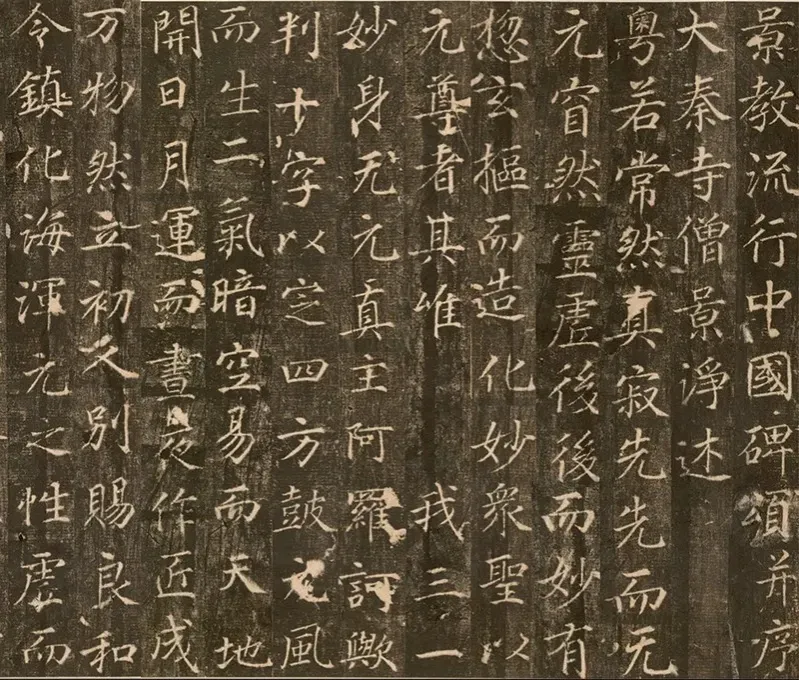 景教流行中國碑頌并序
大秦寺僧景淨述
粵若常然真寂先先而无
元窅然靈虛後後而妙有
惣玄摳而造化妙衆聖以
元尊者其唯 我三一
妙身无元真主阿羅訶歟
判十字以定四方鼓元風
而生二氣暗空易而天地
開日月運而晝夜作匠成
万物然立初人別賜良和
令鎮化海渾元之性虛而